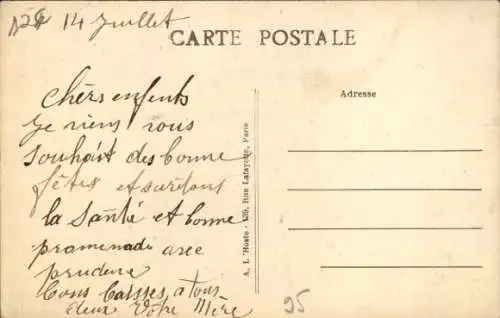 14 Juillet
CARTE POSTALE
Chèrs enfents
Je viens vous
souhait des bonne
fêtes et surtous
la santé et bonne
promenade avec
prudence
bons baisses a tous
deux Votre Mère
A. L'Hoste - 139, Rue Lafayette, Paris
Adresse
95